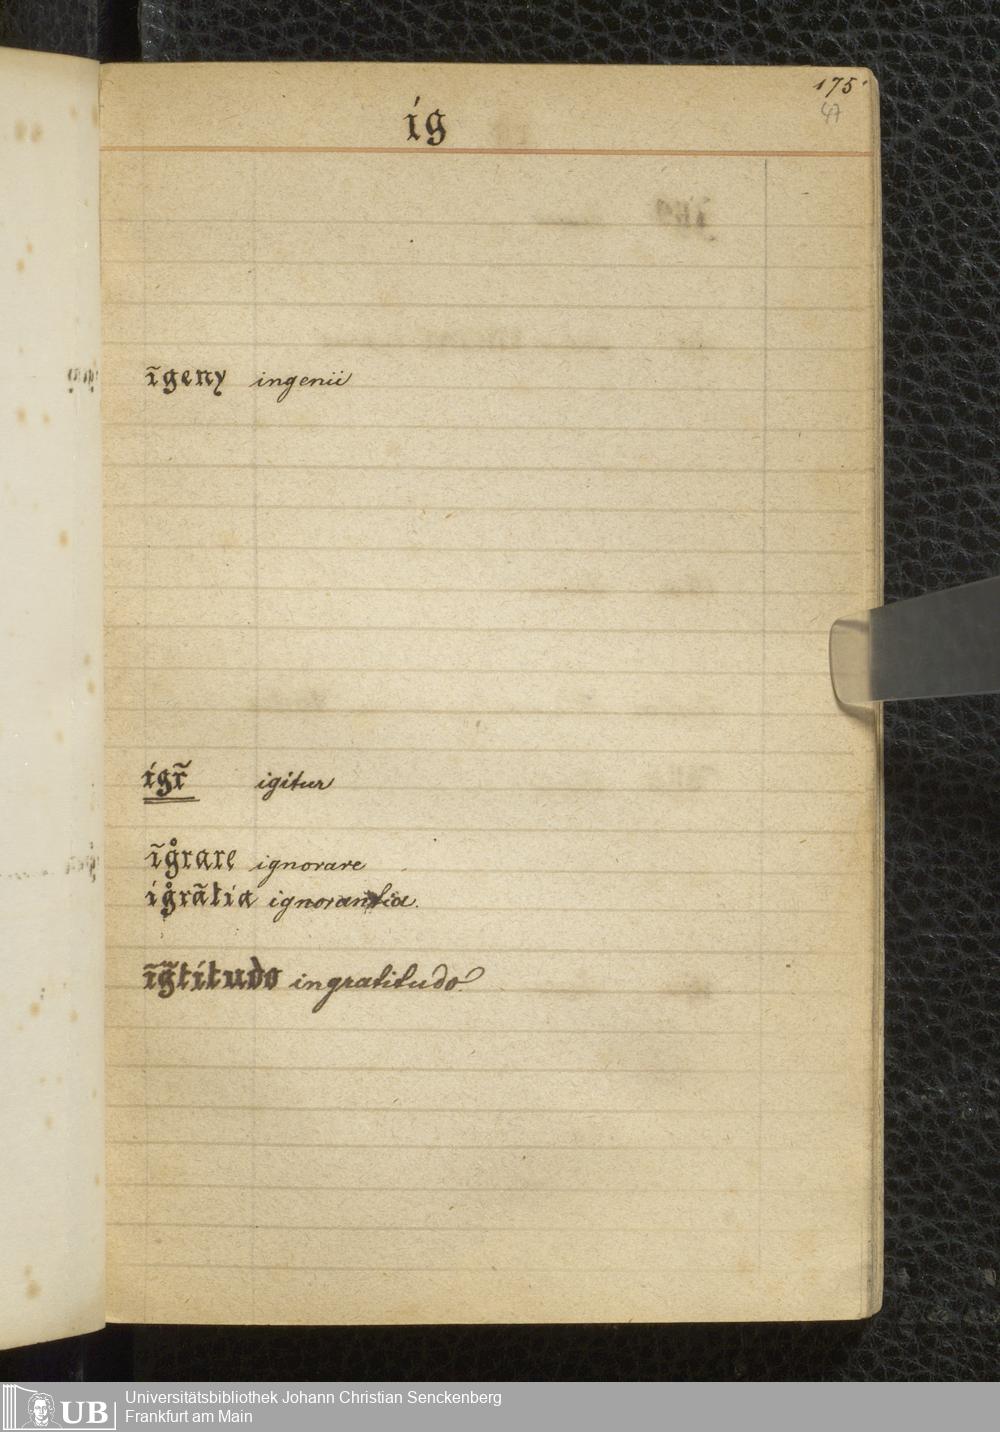 175
47
ig
ĩgeny ingenii
igr̃ igitur
ĩg̊rare ignorare
ig̊rãtia ignorantia.
ĩg̃titudo ingratitudo
UB Universitätsbibliothek Johann Christian Senckenberg
Frankfurt am Main